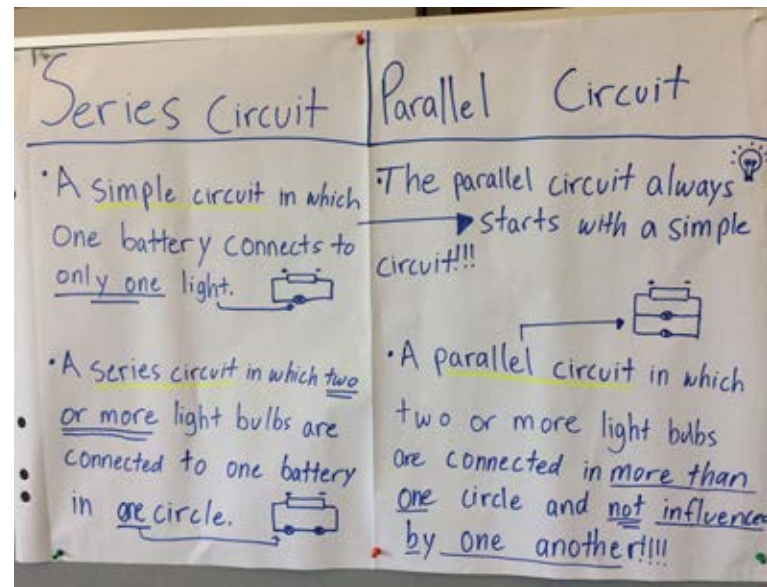 Series Circuit
· A simple circuit in which
One battery connects to
only one light.
· A series circuit in which two
or more light bulbs are
connected to one battery
in one circle.
Parallel Circuit
· The parallel circuit always
starts with a simple
circuit!!!
· A parallel circuit in which
two or more light bulbs
are connected in more than
one circle and not influenced
by one another!!!!